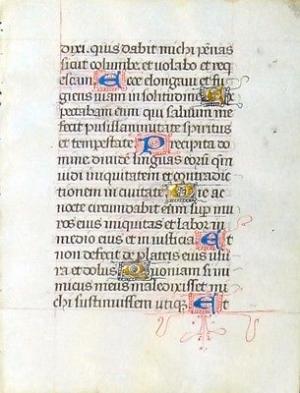 dixi. quis dabit michi pennas
sicut columbe. et volabo et req
escam. Ecce elongavi et fu
giens mansi in solitudine Ex
pectabam eum qui salvum me
fecit pusillanimitate spiritus
et tempestate Precipita do
mine divide linguas eorum qm
vidi iniquitatem et contradic
tionem in civitate Die ac
nocte circumdabit eam sup mu
ros eius iniquitas et labor in
medio eius et iniusticia Et
non defecit de plateis eius usu
ra et dolus Quoniam si ini
micus meus maledixisset mi
chi sustinuissem utique Et